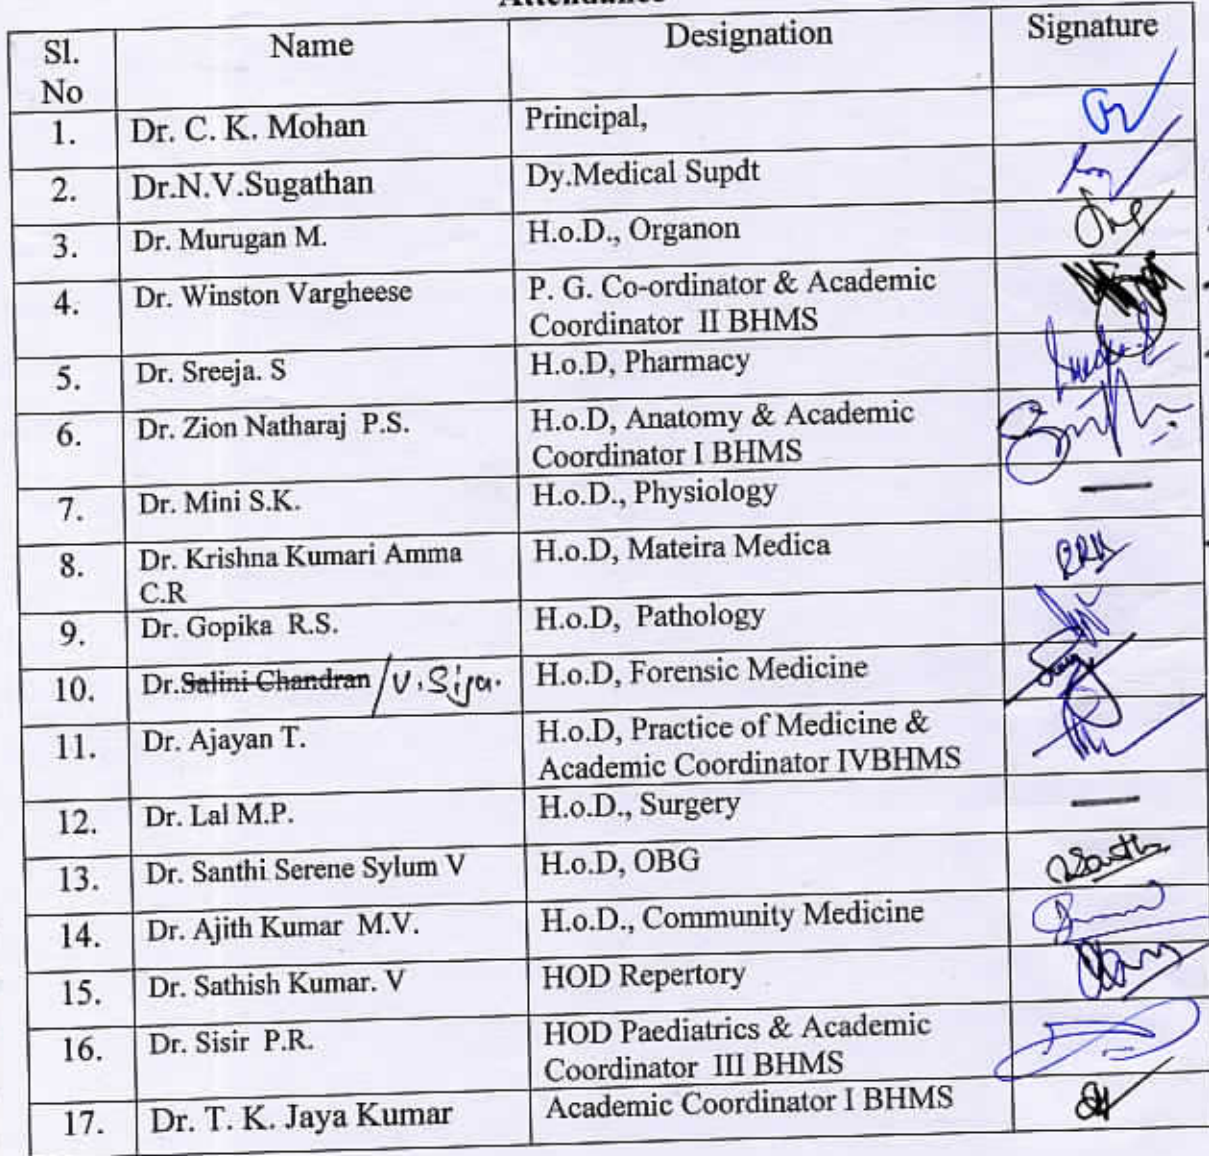 Attendance
Sl. No Name Designation Signature
1. Dr. C. K. Mohan Principal,
2. Dr.N.V.Sugathan Dy.Medical Supdt
3. Dr. Murugan M. H.o.D., Organon
4. Dr. Winston Vargheese P. G. Co-ordinator & Academic
Coordinator II BHMS
5. Dr. Sreeja. S H.o.D, Pharmacy
6. Dr. Zion Natharaj P.S. H.o.D, Anatomy & Academic
Coordinator I BHMS
7. Dr. Mini S.K. H.o.D., Physiology —
8. Dr. Krishna Kumari Amma H.o.D, Mateira Medica
C.R
9. Dr. Gopika R.S. H.o.D, Pathology
10. Dr.Salini Chandran / V. Sija. H.o.D, Forensic Medicine
11. Dr. Ajayan T. H.o.D, Practice of Medicine &
Academic Coordinator IVBHMS
12. Dr. Lal M.P. H.o.D., Surgery —
13. Dr. Santhi Serene Sylum V H.o.D, OBG
14. Dr. Ajith Kumar M.V. H.o.D., Community Medicine
15. Dr. Sathish Kumar. V HOD Repertory
16. Dr. Sisir P.R. HOD Paediatrics & Academic
Coordinator III BHMS
17. Dr. T. K. Jaya Kumar Academic Coordinator I BHMS